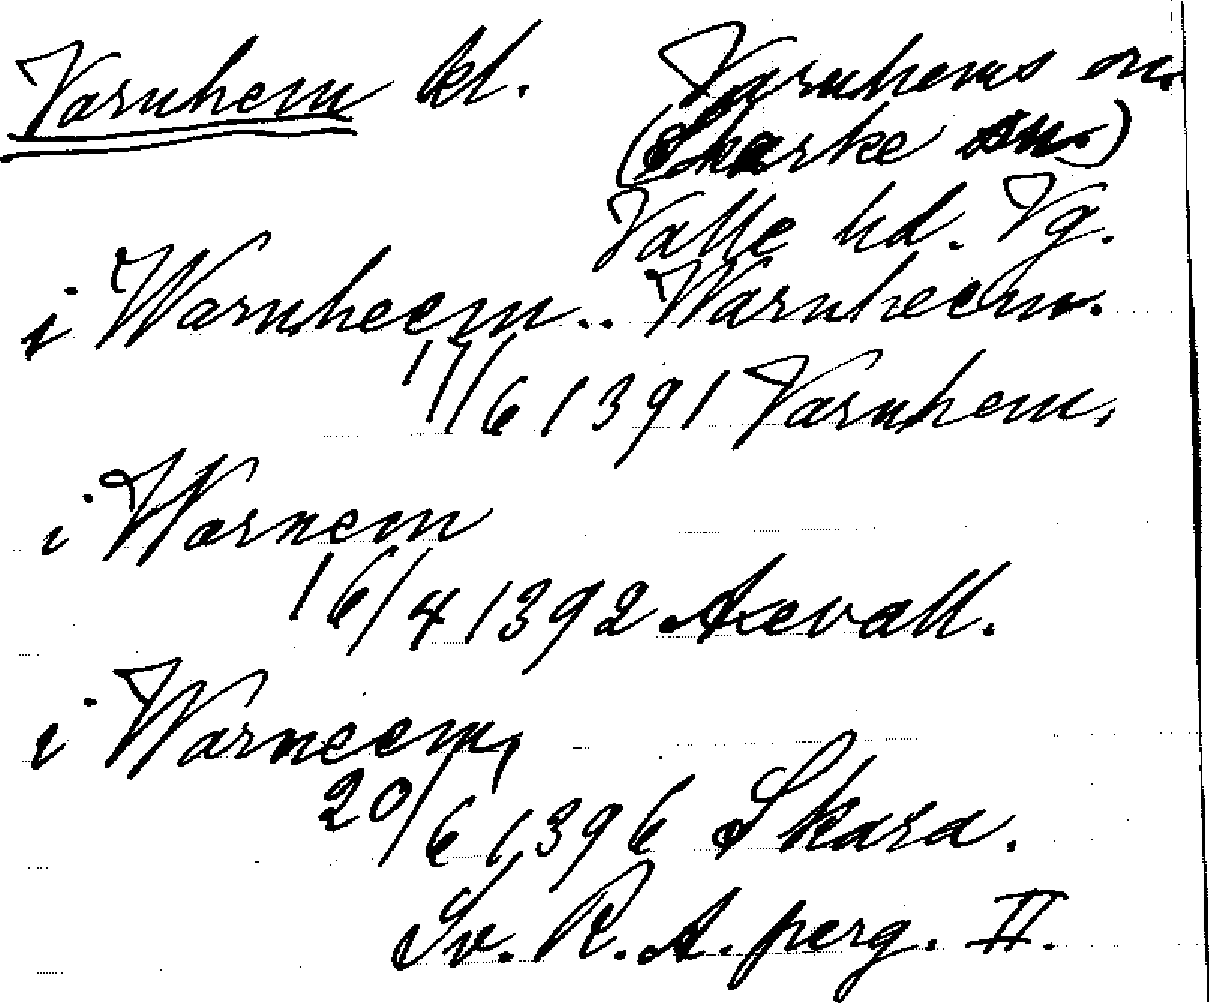 Varnhem kl. Varnhems sn.
(Skarke sn.)
Valle hd. Vg.
i Warnheem .. Warnheem.
17/6 1391 Varnhem.
i Warnem
16/4 1392 Axevall.
i Warneem,
20/6 1396 Skara.
Sv. R. A. perg. II.